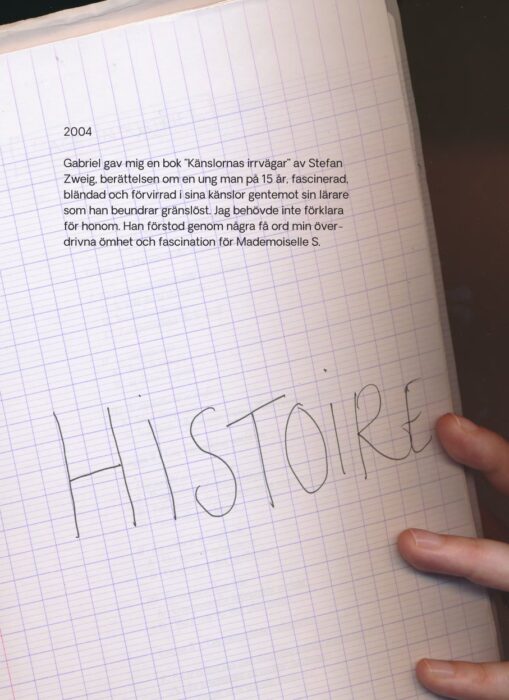 2004
Gabriel gav mig en bok "Känslornas irrvägar" av Stefan
Zweig, berättelsen om en ung man på 15 år, fascinerad,
bländad och förvirrad i sina känslor gentemot sin lärare
som han beundrar gränslöst. Jag behövde inte förklara
för honom. Han förstod genom några få ord min över-
drivna ömhet och fascination för Mademoiselle S.
HISTOIRE